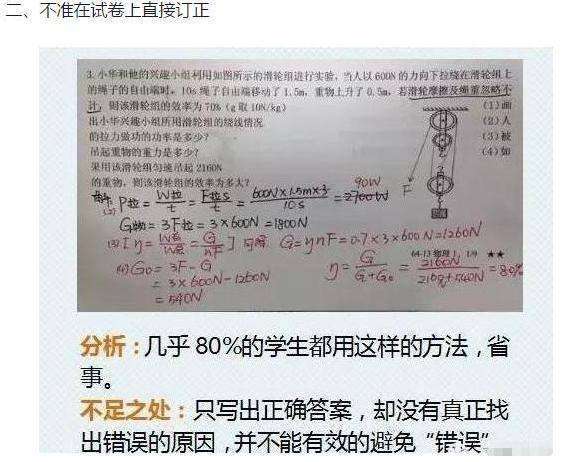 二、不准在试卷上直接订正
3. 小华和他的兴趣小组利用如图所示的滑轮组进行实验，当人以 600N 的力向下拉绕在滑轮组上
的绳子的自由端时，10s 绳子自由端移动了 1.5m，重物上升了 0.5m，若滑轮摩擦及绳重忽略不
计，则该滑轮组的效率为 70%（g 取 10N/kg）
(1)画
出小华兴趣小组所用滑轮组的绕线情况
(2)人
的拉力做功的功率是多少？
(3)被
吊起重物的重力是多少？
(4)如
采用该滑轮组匀速吊起 2160N
的重物，则该滑轮组的效率为多大？
F
解：(2) P拉=W拉/t=F拉s/t=600N×1.5m×3/10s=2700W 90W
G物=3F拉=3×600N=1800N
(3)[η=W有/W总=G/nF] 可得 G=ηnF=0.7×3×600N=1260N
(4)G0=3F-G
=3×600N-1260N
=540N
η=G/G+G0=2160N/2160+540N=80%
★★
分析：几乎 80%的学生都用这样的方法，省
事。
不足之处：只写出正确答案，却没有真正找
出错误的原因，并不能有效的避免“错误”